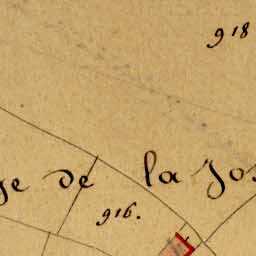 918
ge de la Jos
916.